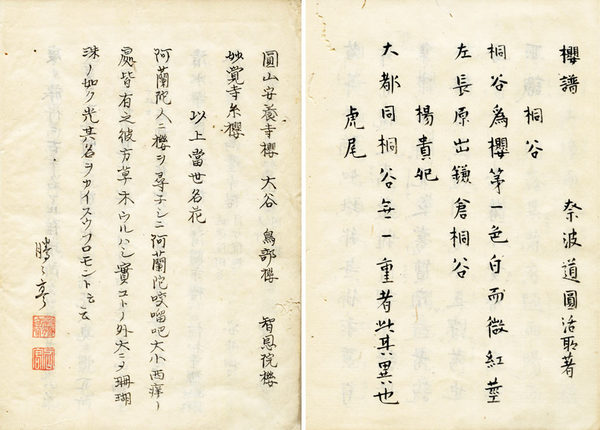 櫻譜 奈波道圓活耴著
桐谷
桐谷爲櫻第一色白而微紅莖
左長原出鎌倉桐谷
楊貴妃
大都同桐谷毎一重者此其異也
虎尾
圓山安養寺櫻 大谷 鳥部櫻 智恩院櫻
妙覚寺糸櫻
以上當世名花
阿蘭陀人ニ櫻ヲ尋子シニ阿蘭陀咬嚠吧大小西痺ノ
處皆有之彼方草木ウルハシ實コトノ外大ニメ珊瑚
洙ノ如ク光其名ヲカイスウフロモントモ云